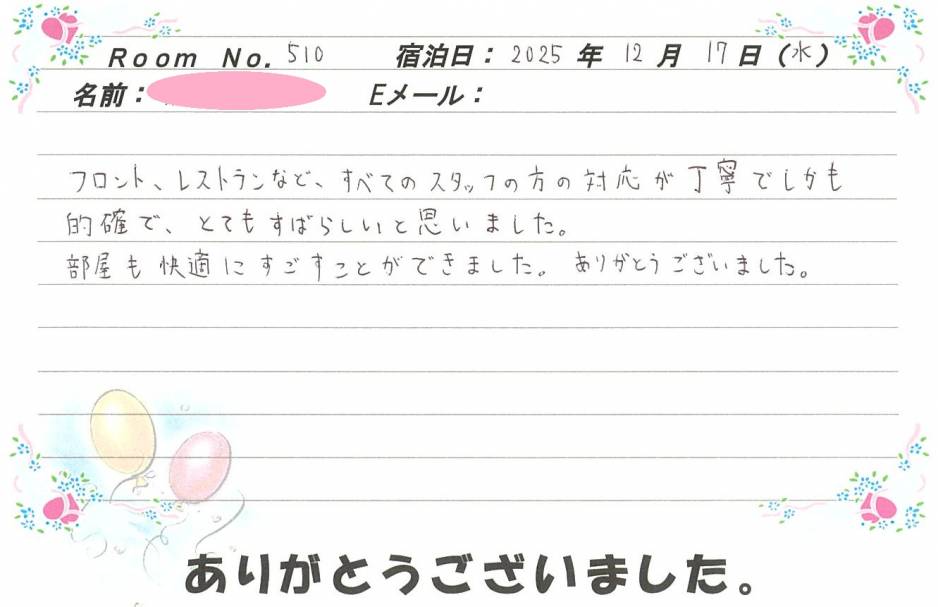 Room No. 510 宿泊日：2025年12月17日（水）
名前： Eメール：
フロント、レストランなど、すべてのスタッフの方の対応が丁寧でしかも
的確で、とてもすばらしいと思いました。
部屋も快適にすごすことができました。ありがとうございました。
ありがとうございました。